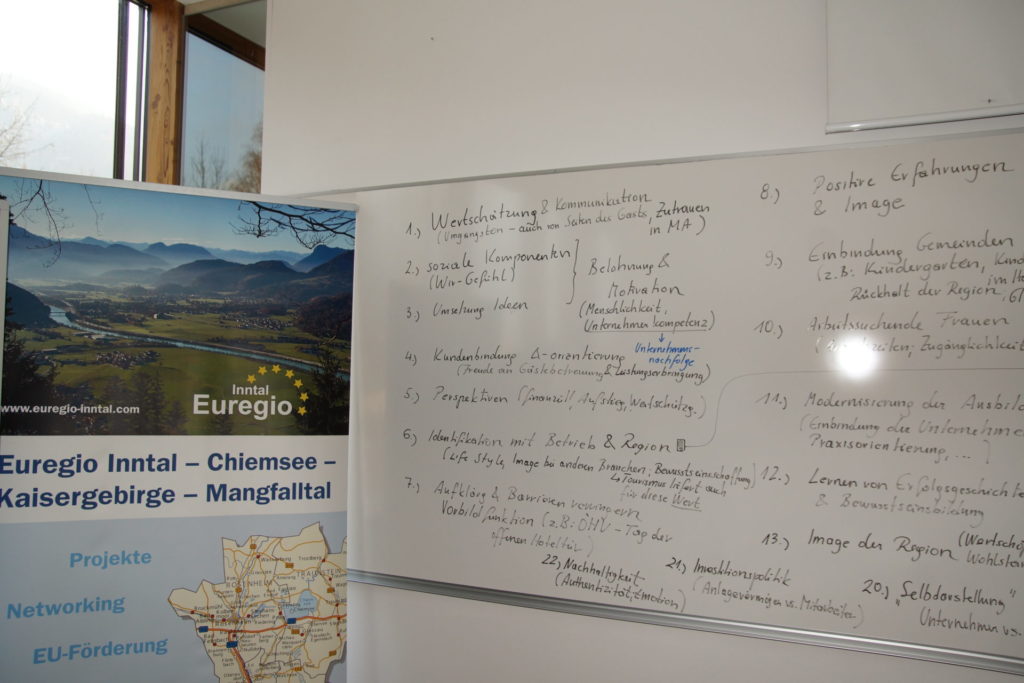 www.euregio-inntal.com
Inntal
Euregio
Euregio Inntal – Chiemsee –
Kaisergebirge – Mangfalltal
Projekte
Networking
EU-Förderung
ROSENHEIM
TRAUNSTEIN
1.) Wertschätzung & Kommunikation
(Umgangston – auch von Seiten des Gasts, Zutrauen
in MA)
2.) soziale Komponenten
(Wir-Gefühl)
3.) Umsetzung Ideen
Belohnung &
Motivation
(Menschlichkeit,
Unternehmerkompetenz)
Unternehmens-
nachfolge
4.) Kundenbindung & -orientierung
(Freude an Gästebetreuung & Leistungserbringung)
5.) Perspektiven (finanziell, Aufstieg, Wertschätzg.)
6.) Identifikation mit Betrieb & Region
(Life Style, Image bei anderen Branchen; Bewusstseinsschaffung)
↳ Tourismus liefert auch
für diese Wert
7.) Aufklärg & Barrieren verringern
Vorbildfunktion (z.B: ÖHV – Tag der
offenen Hoteltür)
22) Nachhaltigkeit
(Authentizität, Emotion)
21.) Investitionspolitik
(Anlagevermögen vs. Mitarbeiter)
8.) Positive Erfahrungen
& Image
9.) Einbindung Gemeinden
(z.B: Kindergarten,
Rückhalt der Region,
10.) Arbeitssuchende Frauen
Zugänglichkeit
11.) Modernisierung der Ausbild
(Einbindung der Unternehme
Praxisorientierung, ...)
12.) Lernen von Erfolgsgeschichte
& Bewusstseinsbildung
13.) Image der Region (Wertschö
Wohlsta
20.) „Selbdarstellung"
Unternehmen vs.